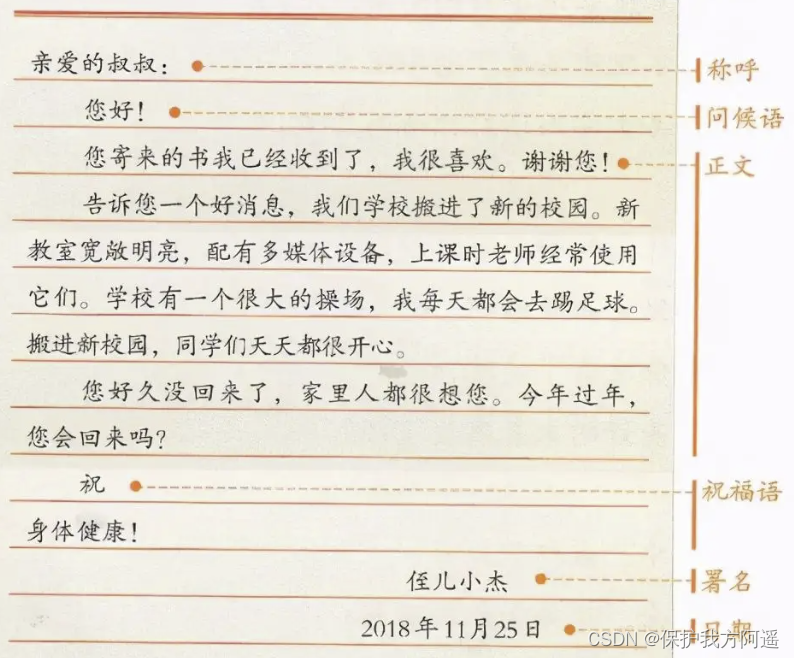 亲爱的叔叔： 称呼
您好！ 问候语
您寄来的书我已经收到了，我很喜欢。谢谢您！ 正文
告诉您一个好消息，我们学校搬进了新的校园。新
教室宽敞明亮，配有多媒体设备，上课时老师经常使用
它们。学校有一个很大的操场，我每天都会去踢足球。
搬进新校园，同学们天天都很开心。
您好久没回来了，家里人都很想您。今年过年，
您会回来吗？
祝 祝福语
身体健康！
侄儿小杰 署名
2018年11月25日 日期
CSDN @保护我方阿遥